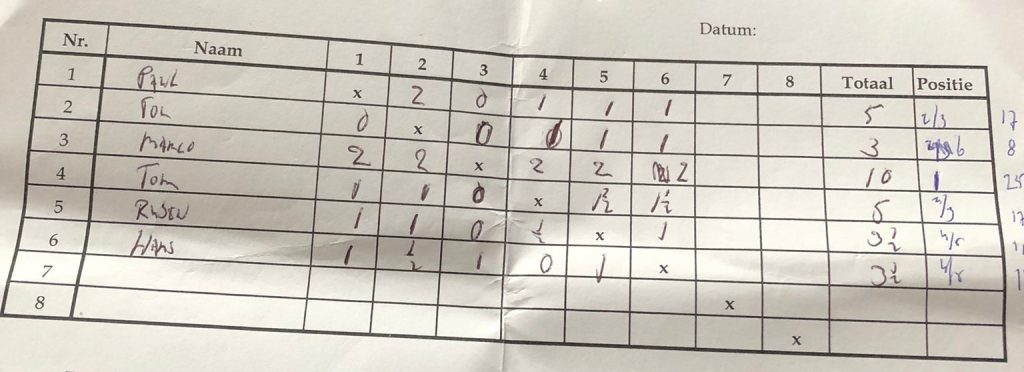 Datum:
Nr. Naam 1 2 3 4 5 6 7 8 Totaal Positie
1 PAUL x 2 0 1 1 1 5 2/3 17
2 Ton 0 x 0 1 1 3 6 8
3 MARCO 2 2 x 2 2 2 10 1 25
4 Tom 1 1 0 x 1½ 1½ 5 2/3 17
5 RUBEN 1 1 0 ½ x 1 3½ 4/5
6 HANS 1 ½ 1 0 1 x 3½ 4/5
7 x
8 x